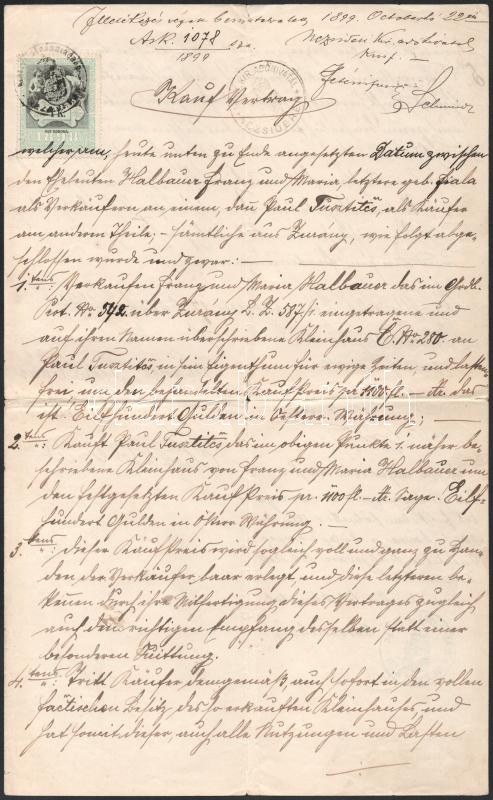 1899. October 22
Ask. 1078 sza.
1899
Kauf Vertrag
welcher am, heute unten zu Ende angesetzten Datum zwischen
den Eheleuten Halbauer Franz und Maria, letztere geb. Fiala
als Verkäufern an einem, dan Paul als Käufer
am anderen Theile, – sämtliche aus Zurány, wie folgt abge-
schlossen wurde und zwar: –
1. tens: Verkaufen Franz und Maria Halbauer das im Grdb.
Prot. No 542 über Zurány eingetragene und
auf ihren Namen überschriebene Kleinhaus C. No 280 an
Paul in sein Eigenthum für ewige Zeiten, und lasten-
frei um den behandelten Kauf Preis pr. 1100 fl. – das
ist Eilfhundert Gulden in Oesterr. Währung; –
2. tens: Kauft Paul das im obigen Punkte 1. näher be-
schriebene Kleinhaus von Franz und Maria Halbauer um
den festgesetzten Kauf Preis pr. 1100 fl. – Sage: Eilf-
hundert Gulden in Währung. –
3. tens: dieser Kaufpreis wird sogleich voll und ganz zu Han-
den der Verkäufer, baar erlegt, und diese letzteren be-
kennen durch ihre Mitfertigung dieses Vertrages zugleich
auch den richtigen Empfang desselben statt einer
besonderen Quittung.
4. tens: Tritt Käufer demgemäß, auch sofort in den vollen
factischen Besitz, des so erkauften Kleinhauses, und
hat somit dieser, auch alle Nutzungen und Lasten